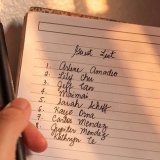 Guest List
1. Arlene Amadeo
2. Lily Choi
3. Jeff Tan
4. Maimai
5. Sarah Schiff
6. Kaye Oma
7. Carlos Mendez
8. Jennifer Mendez
9. Kathryn Te